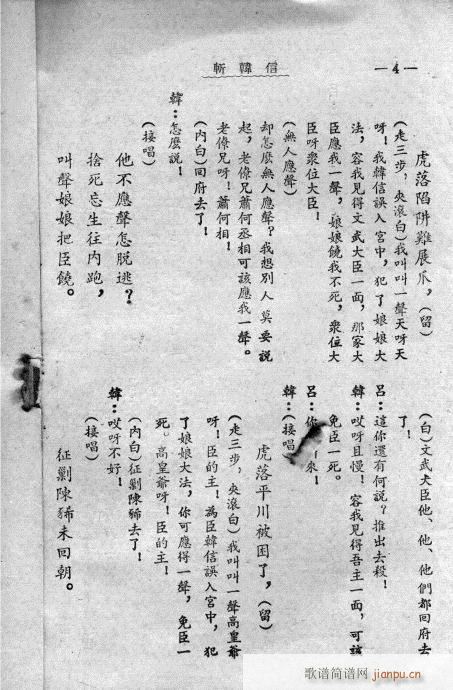 斬韓信
—4—
虎落陷阱難展爪，(留)
(走三步，夾滾白)我叫叫一聲天呀天
呀！我韓信誤入宮中，犯了娘娘大
法，容我見得文武大臣一面，那家大
臣應我一聲，娘娘饒我不死，衆位大
臣呀衆位大臣！
(無人應聲)
却怎麽無人應聲？我想別人莫要說
起，老僚兄蕭何丞相可該應我一聲。
老僚兄呀！蕭何相！
(內白)回府去了！
韓：怎麽說！
(接唱)
他不應聲怎脫逃？
捨死忘生往內跑，
叫聲娘娘把臣饒。
(白)文武大臣他、他、他們都回府去
了！
呂：這你還有何說？推出去殺！
韓：哎呀且慢！容我見得吾主一面，可該
免臣一死。
呂：你 來！
韓：(接唱)
虎落平川被困了，(留)
(走三步，夾滾白)我叫叫一聲高皇爺
呀！臣的主！為臣韓信誤入宮中，犯
了娘娘大法，你可應得一聲，免臣一
死。高皇爺呀！臣的主！
(內白)征剿陳豨去了！
韓：哎呀不好！
(接唱)
征剿陳豨未回朝。
歌谱简谱网
jianpu.cn